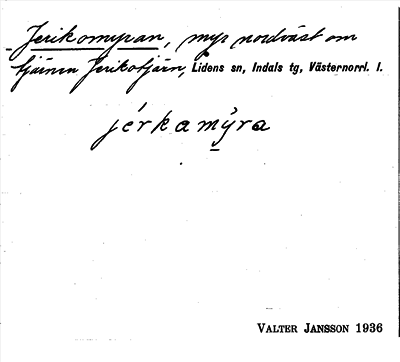 Jerikomyran, myr nordväst om
tjärnen Jerikotjärn, Lidens sn, Indals tg, Västernorrl. l.
jérkamý̱ra
VALTER JANSSON 1936